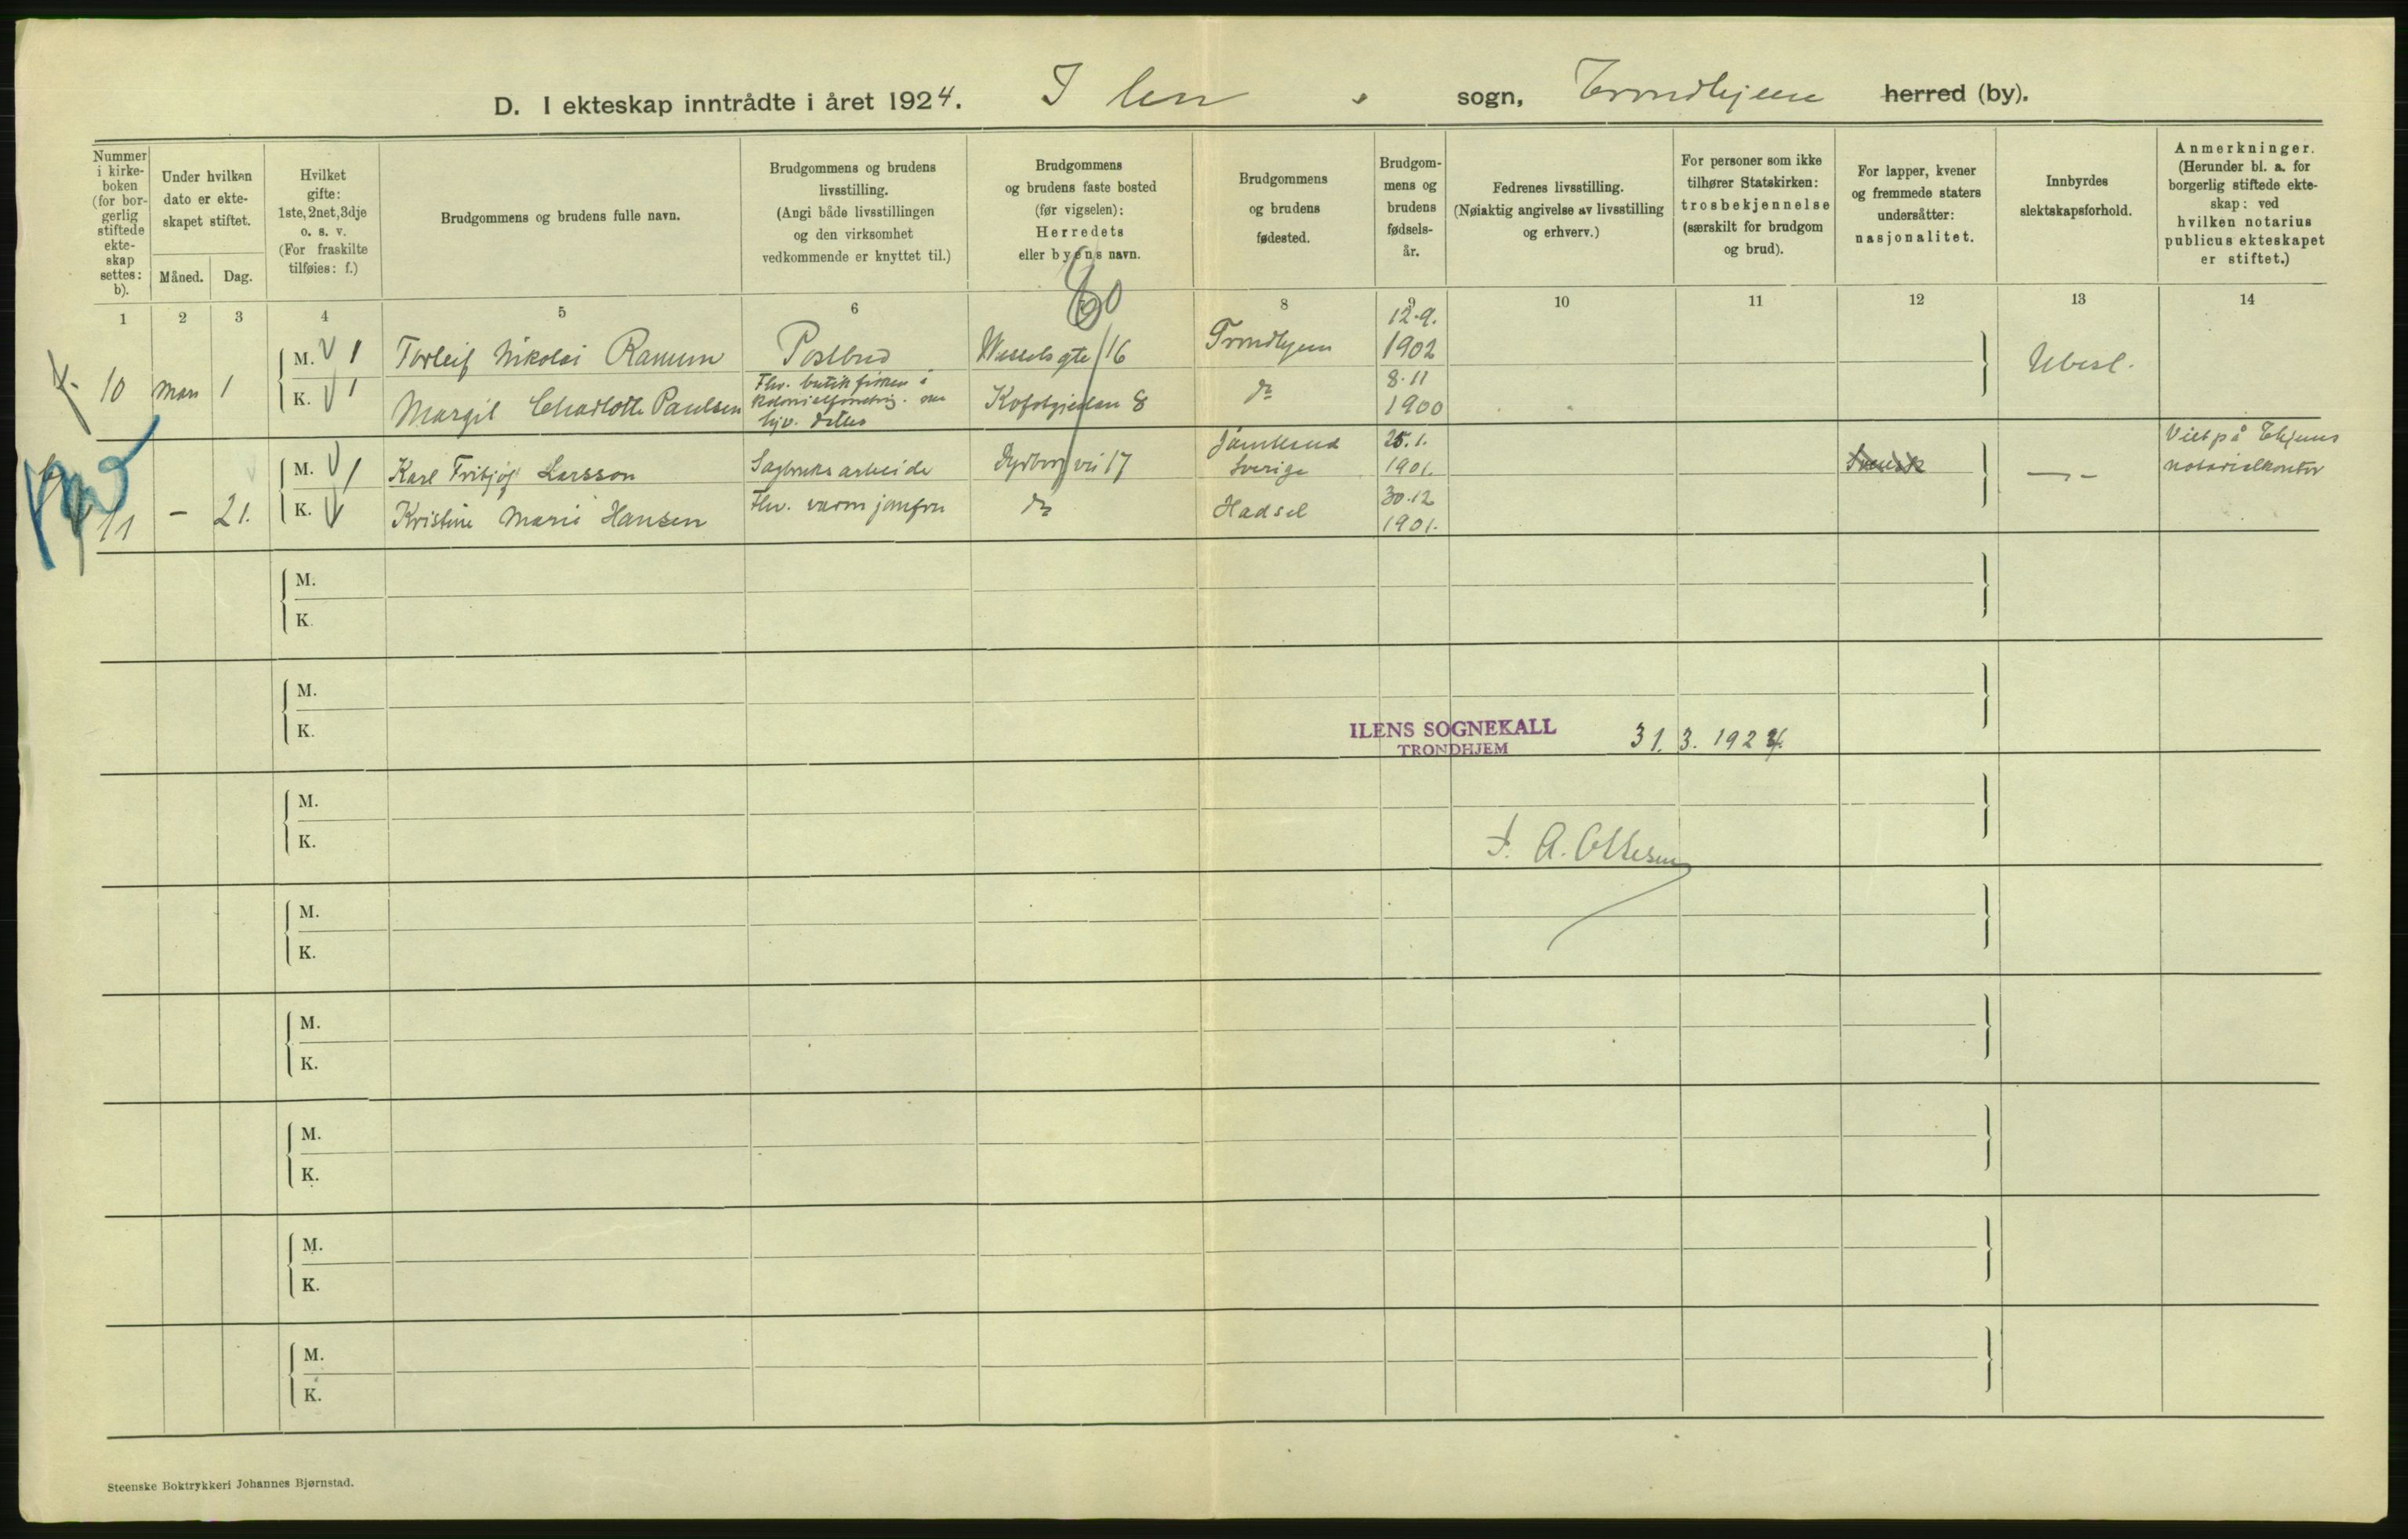 D. I ekteskap inntrådte i året 1924. Ilen sogn, Trondhjem herred (by).
Nummer i kirkeboken (for borgerlig stiftede ekteskap settes: b).
Under hvilken dato er ekteskapet stiftet.
Måned. Dag.
Hvilket gifte: 1ste, 2net, 3dje o. s. v. (For fraskilte tilføies: f.)
Brudgommens og brudens fulle navn.
Brudgommens og brudens livsstilling. (Angi både livsstillingen og den virksomhet vedkommende er knyttet til.)
Brudgommens og brudens faste bosted (før vigselen): Herredets eller byens navn.
Brudgommens og brudens fødested.
Brudgommens og brudens fødselsår.
Fedrenes livsstilling. (Nøiaktig angivelse av livsstilling og erhverv.)
For personer som ikke tilhører Statskirken: trosbekjennelse (særskilt for brudgom og brud).
For lapper, kvener og fremmede staters undersåtter: nasjonalitet.
Innbyrdes slektskapsforhold.
Anmerkninger. (Herunder bl. a. for borgerlig stiftede ekteskap: ved hvilken notarius publicus ekteskapet er stiftet.)
60
1 2 3 4 5 6 8 9 10 11 12 13 14
10 Mars 1 M. 1 Torleif Nikolai Ramun Postbud Wesselsgte 16 Trondhjem 12.9. 1902 Ubesl.
K. 1 Margit Charlotte Paulsen Thv. butikfrøken i 8 do 8.11 1900
11 - 21. M. 1 Karl Fritjof Larsson Sagbruksarbeide Dyrborgvei 17 Jämtland Sverige 25.1. 1901. Svensk —„— Viet på Thjems notarialkontor
K. Kristine Marie Hansen Thv. varmjomfru do Hadsel 30.12 1901.
M.
K.
M.
K.
ILENS SOGNEKALL
TRONDHJEM
31. 3. 1924.
M.
K.
A. Ottesen
M.
K.
M.
K.
M.
K.
M.
K.
M.
K.
Steenske Boktrykkeri Johannes Bjørnstad.